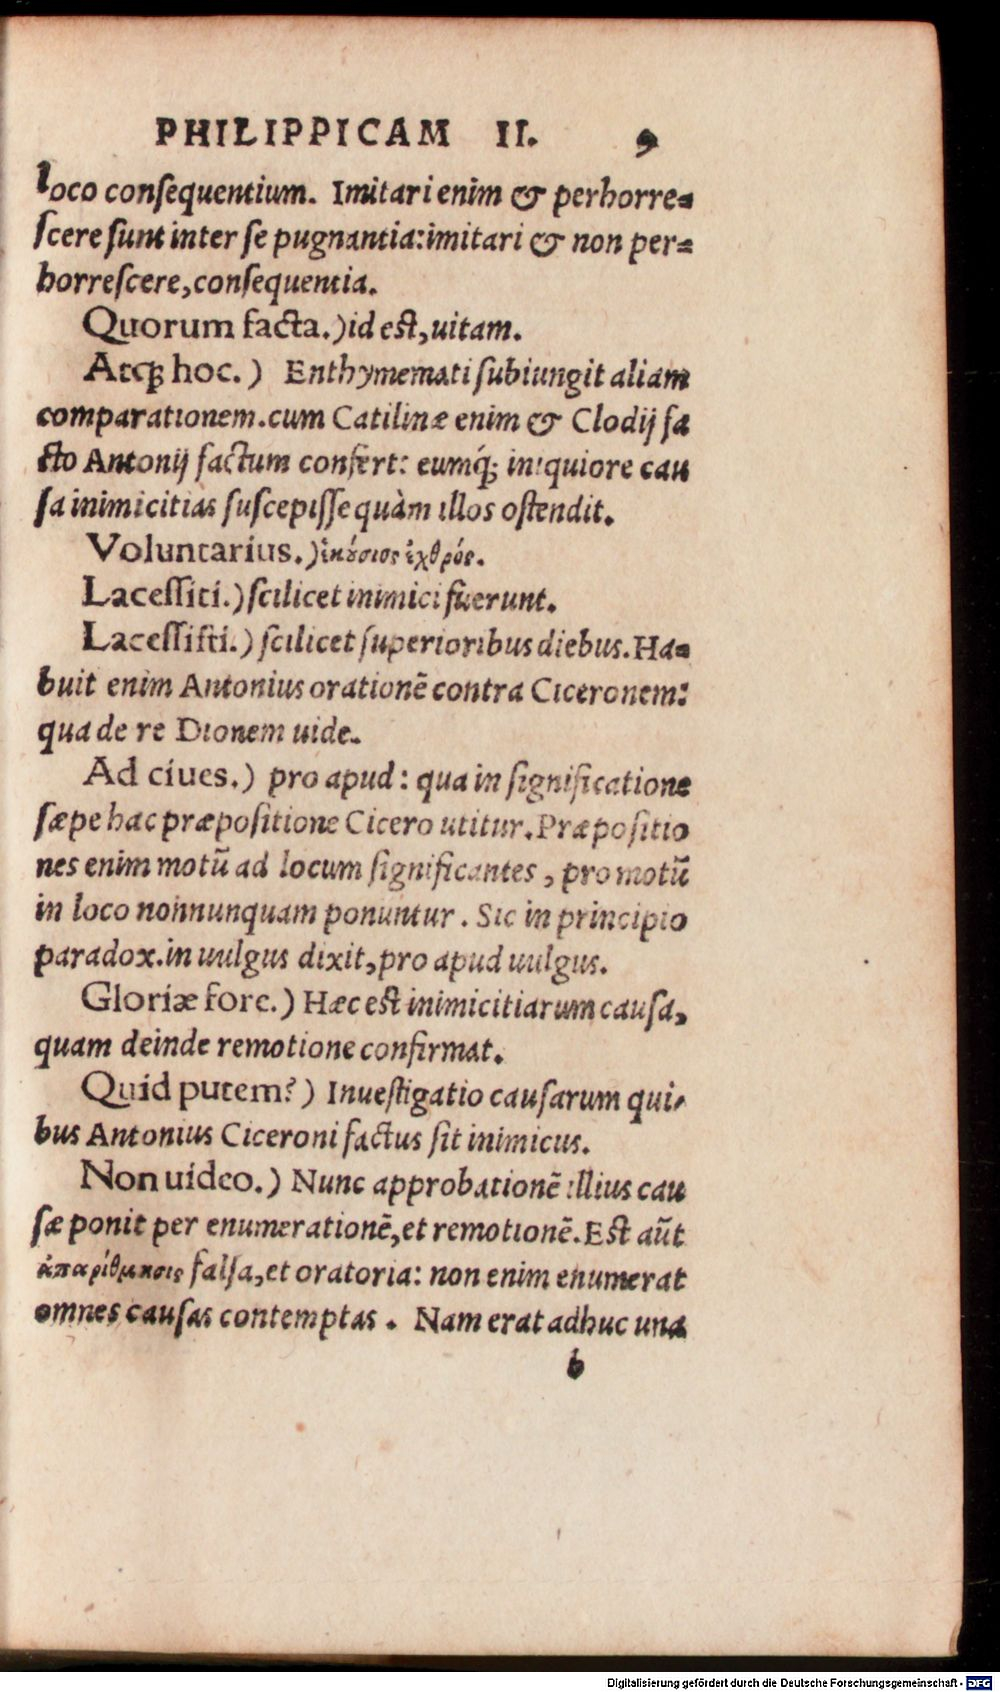 PHILIPPICAM II. 9
loco consequentium. Imitari enim & perhorre=
scere sunt inter se pugnantia: imitari & non per=
horrescere, consequentia.
Quorum facta.) id est, uitam.
Atq; hoc.) Enthymemati subiungit aliam
comparationem. cum Catilinæ enim & Clodij fa
cto Antonij factum confert: eumq́; iniquiore cau
sa inimicitias suscepisse quàm illos ostendit.
Voluntarius.) ἑκούσιος ἐχθρός.
Lacessiti.) scilicet inimici fuerunt.
Lacessisti.) scilicet superioribus diebus. Ha=
buit enim Antonius orationẽ contra Ciceronem:
qua de re Dionem uide.
Ad ciues.) pro apud: qua in significatione
sæpe hac præpositione Cicero utitur. Præpositio
nes enim motũ ad locum significantes, pro motũ
in loco nonnunquam ponuntur. Sic in principio
paradox. in uulgus dixit, pro apud uulgus.
Gloriæ fore.) Hæc est inimicitiarum causa,
quam deinde remotione confirmat.
Quid putem?) Inuestigatio causarum qui-
bus Antonius Ciceroni factus sit inimicus.
Non uideo.) Nunc approbationẽ illius cau
sæ ponit per enumerationẽ, et remotionẽ. Est aũt
ἀπαρίθμησις falsa, et oratoria: non enim enumerat
omnes causas contemptas. Nam erat adhuc una
b
Digitalisierung gefördert durch die Deutsche Forschungsgemeinschaft - DFG